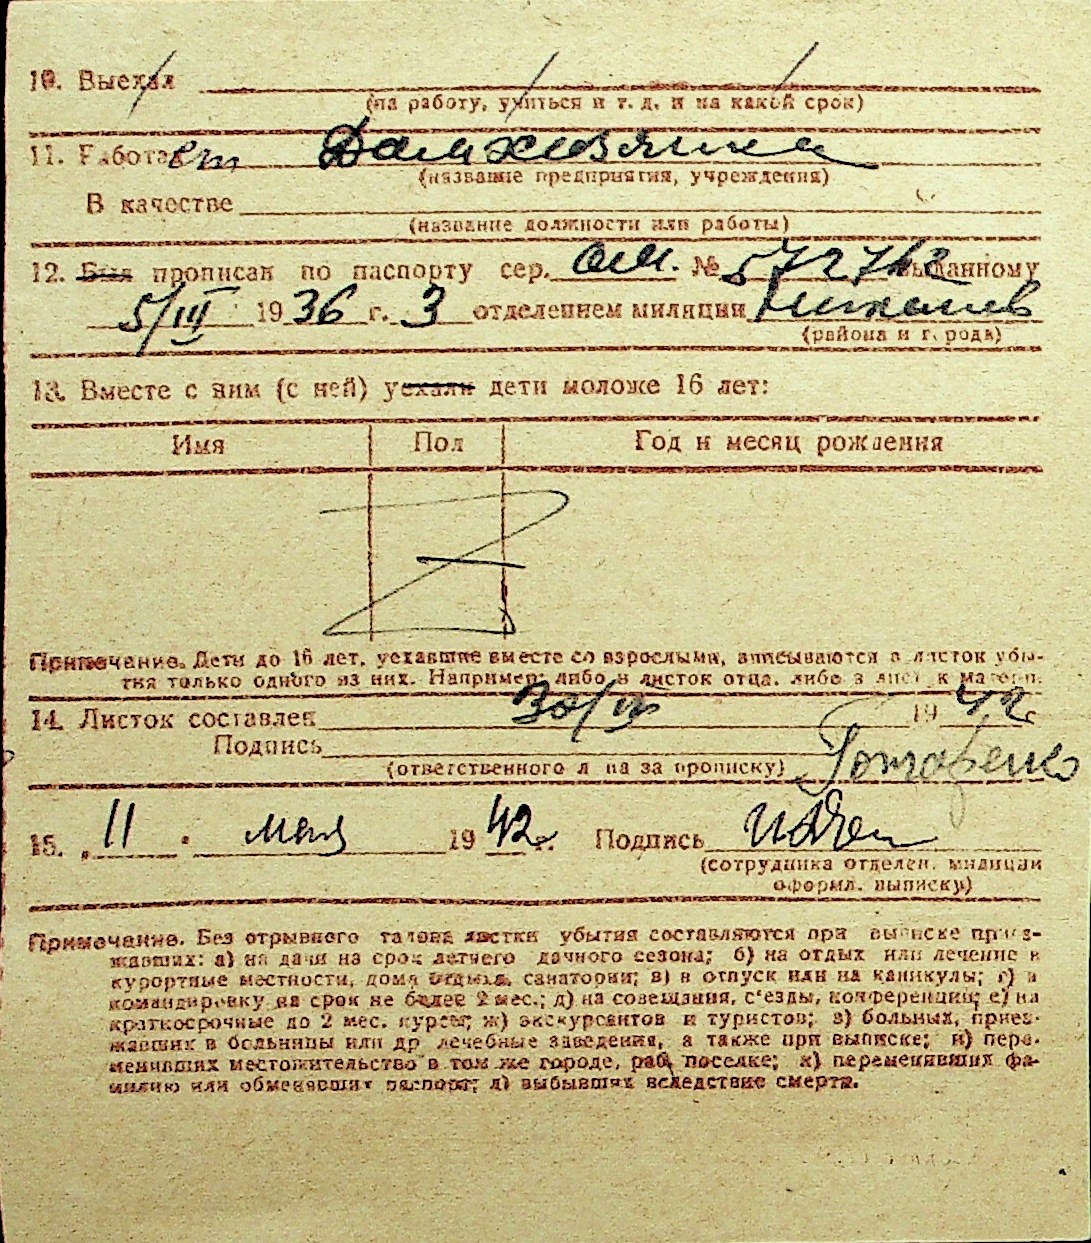 10. Выехал
(на работу, учиться и т. д. и на какой срок)
11. Работает Домхозяйка
(название предприятия, учреждения)
В качестве
(название должности или работы)
12. Был прописан по паспорту сер. № 572712 выданному
5/III 1936 г. 3 отделением милиции Николаев
(района и города)
13. Вместе с ним (с ней) уехали дети моложе 16 лет:
Имя Пол Год и месяц рождения
Примечание. Дети до 16 лет, уехавшие вместе со взрослыми, вписываются в листок убы-
тия только одного из них. Например, либо в листок отца, либо в листок матери.
14. Листок составлен 30/IV 1942 г.
Подпись Гончаренко
(ответственного лица за прописку)
15. „11" мая 1942 г. Подпись
(сотрудника отделен. милиции
оформл. выписку)
Примечание. Без отрывного талона листки убытия составляются при выписке приез-
жавших: а) на дачи на срок летнего дачного сезона; б) на отдых или лечение в
курортные местности, дома отдыха, санатории; в) в отпуск или на каникулы; г) в
командировку на срок не более 2 мес.; д) на совещания, с'езды, конференции; е) на
краткосрочные до 2 мес. курсы; ж) экскурсантов и туристов; з) больных, приез-
жавших в больницы или др лечебные заведения, а также при выписке; и) пере-
менивших местожительство в том же городе, раб. поселке; к) переменивших фа-
милию или обменявших паспорт; л) выбывших вследствие смерти.